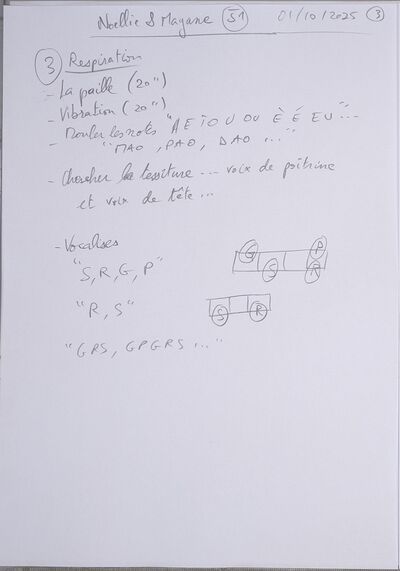 Noellie & Mayane S1 01/10/2025 3
3 Respiration
- La paille (20")
- Vibration (20")
- Rouler les mots "A E I O U OU È É EU"...
"MAO, PAO, DAO ..."
- Chercher la tessiture ... voix de poitrine
et voix de tête...
- Vocalises
"S, R, G, P"
G P
S R
"R, S"
S R
"GRS, GPGRS ..."